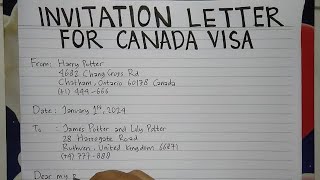 INVITATION LETTER
FOR CANADA VISA
From: Harry Potter
4682 Chang Cross Rd
Chatham, Ontario 60178 Canada
(+1) 444-666
Date: January 1st, 2024
To: James Potter and Lily Potter
28 Harrogate Road
Ruthven, United Kingdom 66871
(+4) 777-888
Dear my